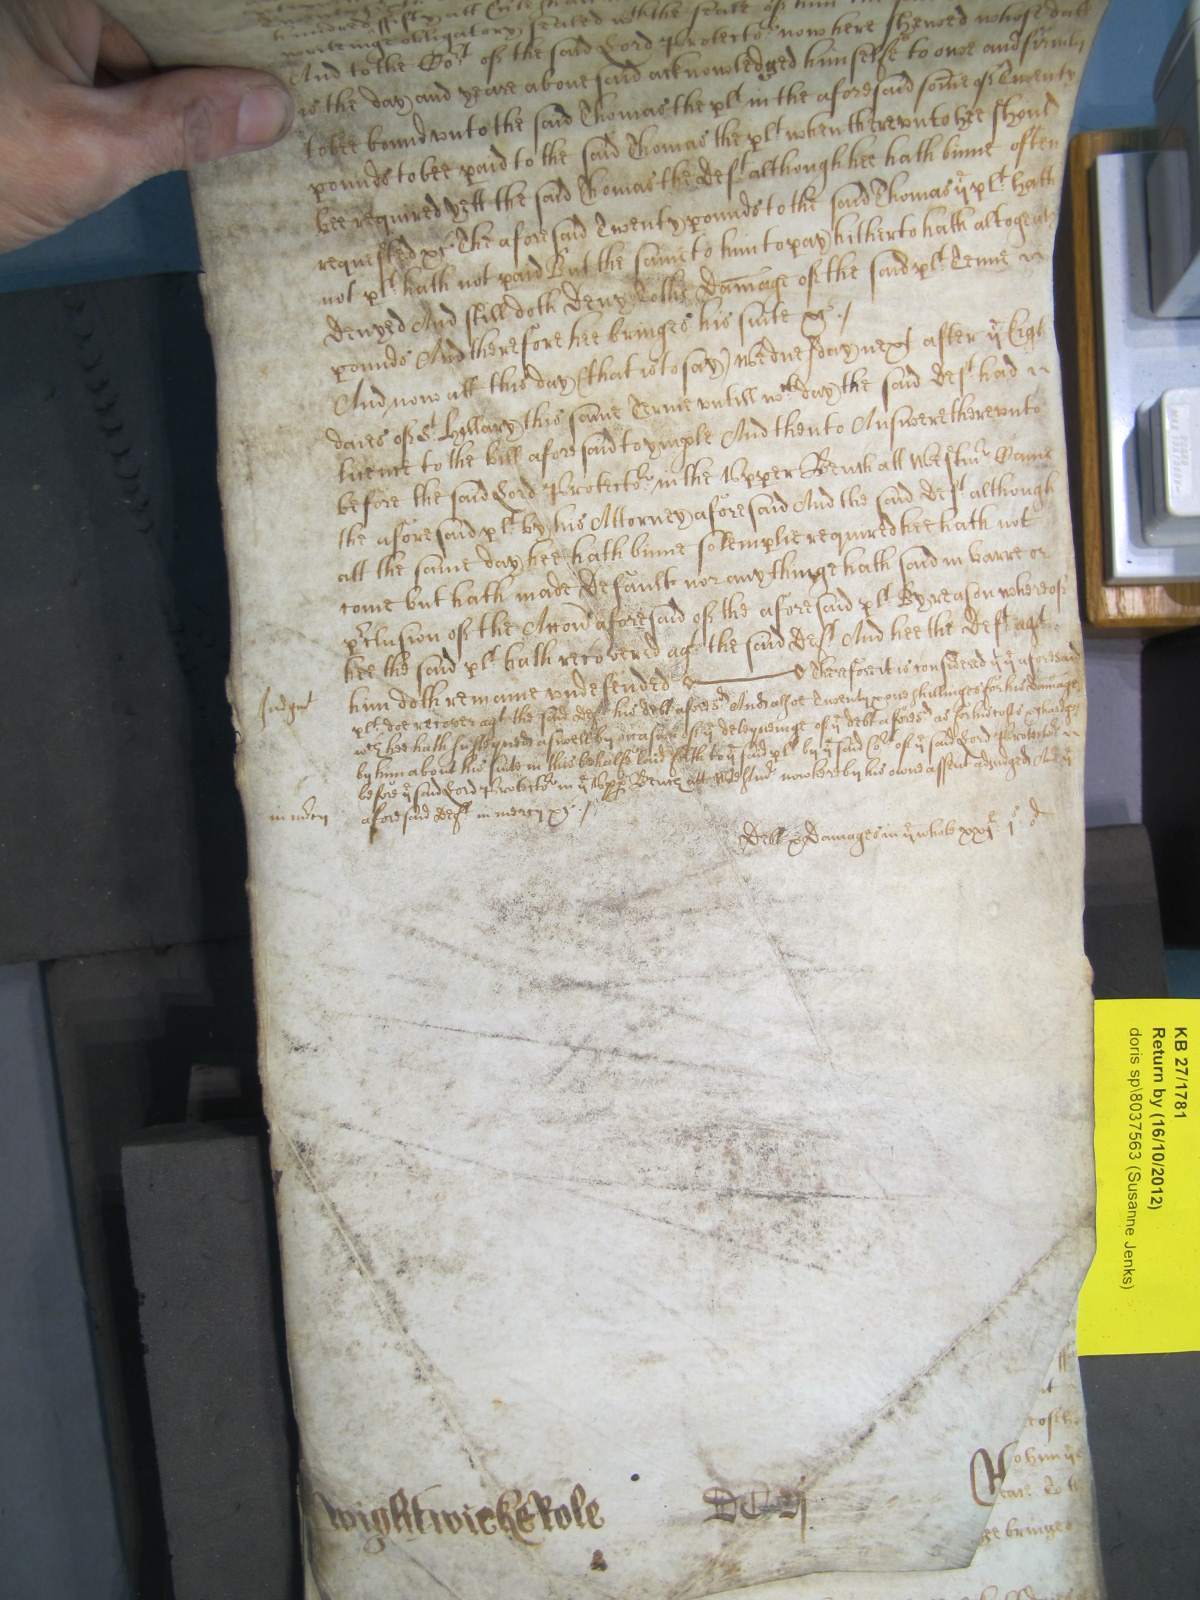 hundred fifty att
writeinge obligatory sealed with the seale of him
And to the Cort of the said Lord Protector now here shewed whose date
is the day and yeare abovesaid acknowledged himselfe to owe and firmly
to bee bound unto the said Thomas the plt in the aforesaid some of Twenty
pounds to bee paid to the said Thomas the plt when thereunto hee should
bee required yett the said Thomas the Deft although hee hath binne often
requested &c The aforesaid Twenty pounds to the said Thomas ye plt hath
not hath not paid But the same to him to pay hitherto hath altogeather
denyed And still doth deny To the Damage of the said plt Tenne
pounds And therefore hee bringes his suite &c /
And now att this day (that is to say) Wednesday next after ye Eight
daies of St Hyllary this same Terme untill wch day the said Deft had
licence to the bill aforesaid to ymple And then to Answere thereunto
before the said Lord Protector in the Upper Bench att Westmr Came
the aforesaid plt by his Attorney aforesaid And the said Deft although
att the same day hee hath binne solemplie required hee hath not
come but hath made default nor any thinge hath said in barre or
preclusion of the Accon aforesaid of the aforesaid plt By reason whereof
hee the said plt hath recovered agt the said Deft And hee the Deft agt
him doth remaine undefended Therefore it is considered yt ye aforesaid
Judgmt
plt doe recover agt the said Deft his debt aforesd And alsoe Twenty one shillinges for his damages
wch hee hath susteyned aswell by occasion of ye deteyneinge of ye debt aforesd as for his costs & chardges
by him about his suite in this behalfe laid forth to ye said plt by ye said Cort of ye said Lord Protector
before ye said Lord Protector in ye Upper Bench att Westmr now here by his owne assent adjudged And ye
in mercy
aforesaid Deft in mercy &c /
Debt & Damages in ye whole xxjl js d
Wightwicke Role
KB 27/1781
Return by (16/10/2012)
doris sp\8037563 (Susanne Jenks)
hee bringes